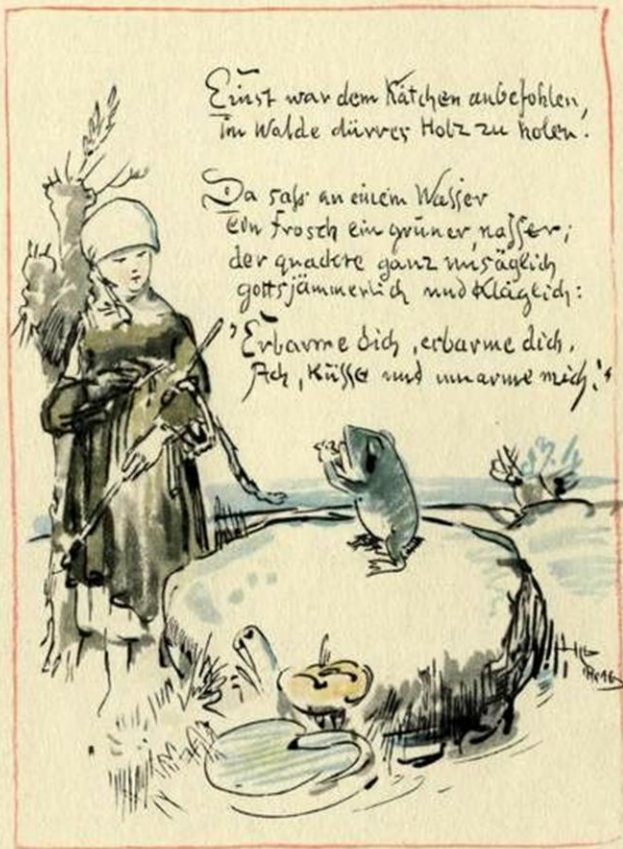 Einst war dem Kätchen anbefohlen,
im Walde dürres Holz zu holen.
Da saß an einem Wasser
ein Frosch ein grüner, nasser;
der quackte ganz unsäglich
gottsjämmerlich und kläglich:
"Erbarme dich, erbarme dich,
Ach, Küsse und umarme mich!"